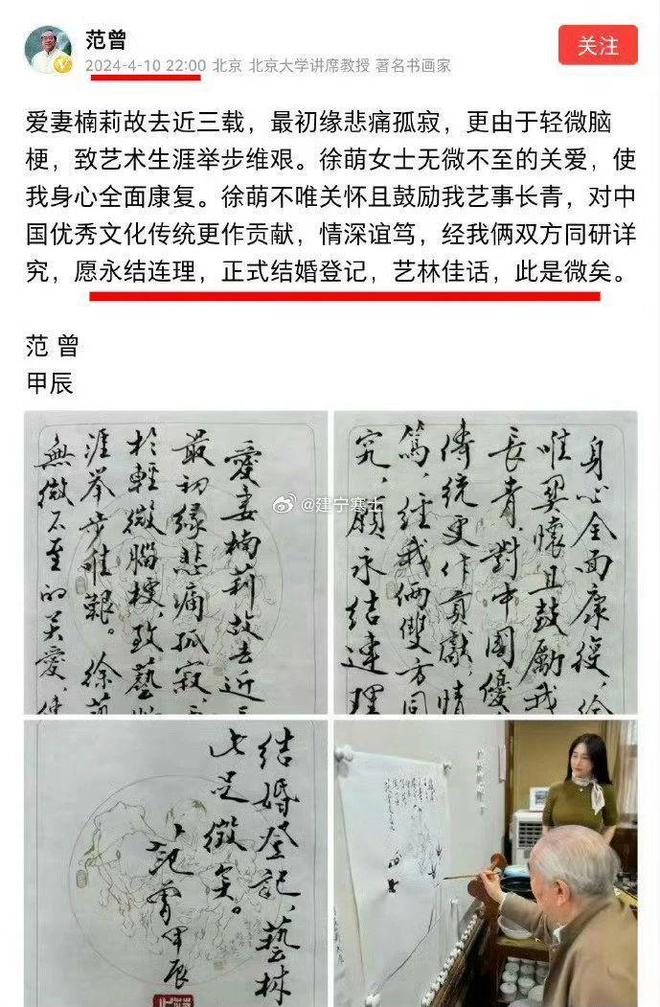 范曾
关注
2024-4-10 22:00 北京 北京大学讲席教授 著名书画家
爱妻楠莉故去近三载，最初缘悲痛孤寂，更由于轻微脑
梗，致艺术生涯举步维艰。徐萌女士无微不至的关爱，使
我身心全面康复。徐萌不唯关怀且鼓励我艺事长青，对中
国优秀文化传统更作贡献，情深谊笃，经我俩双方同研详
究，愿永结连理，正式结婚登记，艺林佳话，此是微矣。
范 曾
甲辰
愛妻楠莉故去近三
最初缘悲痛孤寂，
於輕微腦梗，致藝
涯举步唯艱。徐萌
無微不至的关爱，使
@建宁寒士
身心全面康復，徐
唯関懷且鼓勵我
長青，對中國優
傳统更作貢獻，情
篤，經我俩雙方同
究，願永结連理
结婚登记，藝林
此是微矣。
范曾甲辰